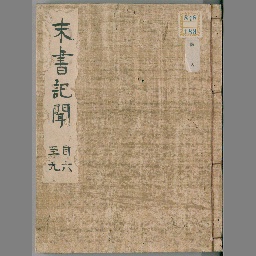 末書記聞
自六
至九